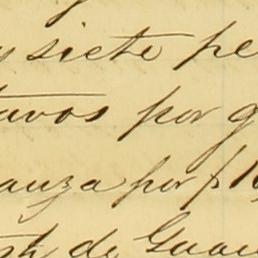 y siete pe
tavos por g
anza por $ 10
de Gua